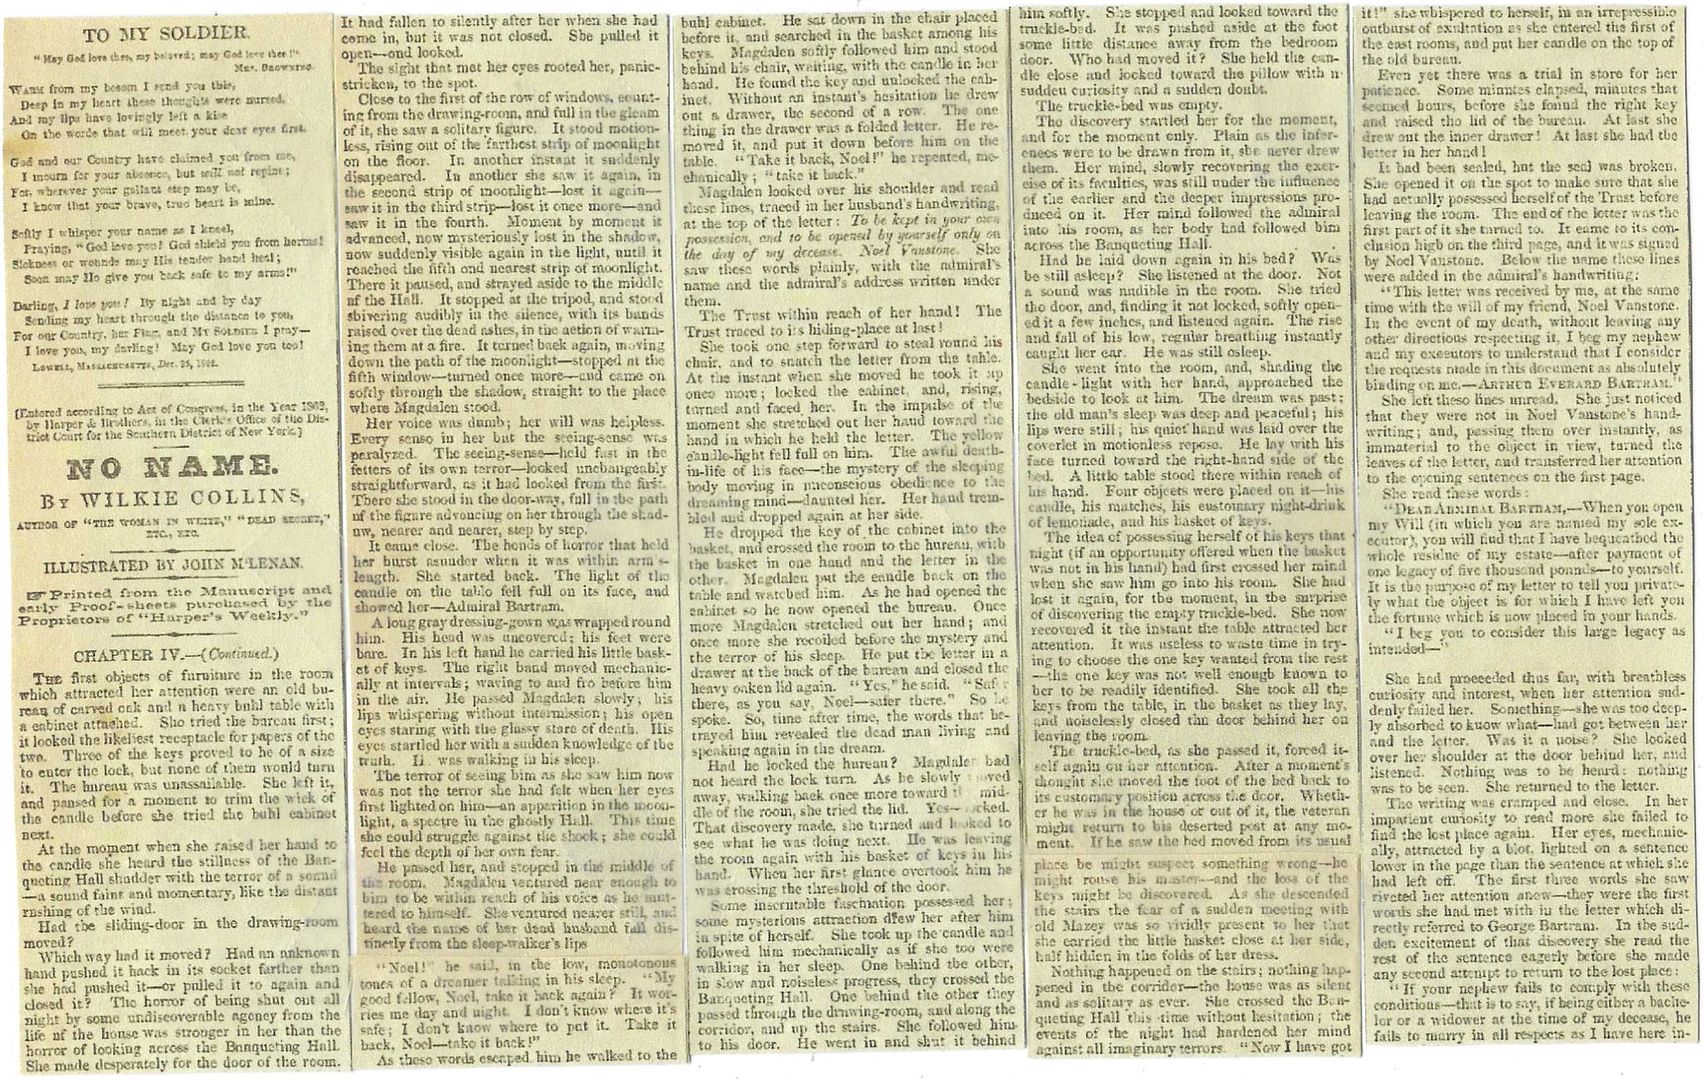 TO MY SOLDIER.
"May God love thee, my beloved; may God love thee!"
MRS. BROWNING.
WARM from my bosom I send you this,
Deep in my heart these thoughts were nursed,
And my lips have lovingly left a kiss
On the words that will meet your dear eyes first.
God and our Country have claimed you from me,
I mourn for your absence, but will not repine;
For, wherever your gallant step may be,
I know that your brave, true heart is mine.
Softly I whisper your name as I kneel,
Praying, "God love you! God shield you from harms!
Sickness or wounds may His tender hand heal;
Soon may He give you back safe to my arms!"
Darling, I love you! By night and by day
Sending my heart through the distance to you,
For our Country, her Flag, and MY SOLDIER I pray—
I love you, my darling! May God love you too!
LOWELL, MASSACHUSETTS, Dec. 25, 1862.
[Entered according to Act of Congress, in the Year 1862,
by Harper & Brothers, in the Clerk's Office of the Dis-
trict Court for the Southern District of New York.]
NO NAME.
BY WILKIE COLLINS,
AUTHOR OF "THE WOMAN IN WHITE," "DEAD SECRET,"
ETC., ETC.
ILLUSTRATED BY JOHN M'LENAN.
☞ Printed from the Manuscript and
early Proof-sheets purchased by the
Proprietors of "Harper's Weekly."
CHAPTER IV.—(Continued.)
THE first objects of furniture in the room
which attracted her attention were an old bu-
reau of carved oak and a heavy buhl table with
a cabinet attached. She tried the bureau first;
it looked the likeliest receptacle for papers of the
two. Three of the keys proved to be of a size
to enter the lock, but none of them would turn
it. The bureau was unassailable. She left it,
and paused for a moment to trim the wick of
the candle before she tried the buhl cabinet
next.
At the moment when she raised her hand to
the candle she heard the stillness of the Ban-
queting Hall shudder with the terror of a sound
—a sound faint and momentary, like the distant
rushing of the wind.
Had the sliding-door in the drawing-room
moved?
Which way had it moved? Had an unknown
hand pushed it back in its socket farther than
she had pushed it—or pulled it to again and
closed it? The horror of being shut out all
night by some undiscoverable agency from the
life of the house was stronger in her than the
horror of looking across the Banqueting Hall.
She made desperately for the door of the room.
It had fallen to silently after her when she had
come in, but it was not closed. She pulled it
open—and looked.
The sight that met her eyes rooted her, panic-
stricken, to the spot.
Close to the first of the row of windows, count-
ing from the drawing-room, and full in the gleam
of it, she saw a solitary figure. It stood motion-
less, rising out of the farthest strip of moonlight
on the floor. In another instant it suddenly
disappeared. In another she saw it again, in
the second strip of moonlight—lost it again—
saw it in the third strip—lost it once more—and
saw it in the fourth. Moment by moment it
advanced, now mysteriously lost in the shadow,
now suddenly visible again in the light, until it
reached the fifth and nearest strip of moonlight.
There it paused, and strayed aside to the middle
of the Hall. It stopped at the tripod, and stood
shivering audibly in the silence, with its hands
raised over the dead ashes, in the action of warm-
ing them at a fire. It turned back again, moving
down the path of the moonlight—stopped at the
fifth window—turned once more—and came on
softly through the shadow, straight to the place
where Magdalen stood.
Her voice was dumb; her will was helpless.
Every sense in her but the seeing-sense was
paralyzed. The seeing-sense—held fast in the
fetters of its own terror—looked unchangeably
straightforward, as it had looked from the first.
There she stood in the door-way, full in the path
of the figure advancing on her through the shad-
ow, nearer and nearer, step by step.
It came close. The bonds of horror that held
her burst asunder when it was within arm's-
length. She started back. The light of the
candle on the table fell full on its face, and
showed her—Admiral Bartram.
A long gray dressing-gown was wrapped round
him. His head was uncovered; his feet were
bare. In his left hand he carried his little bask-
et of keys. The right hand moved mechanic-
ally at intervals; waving to and fro before him
in the air. He passed Magdalen slowly; his
lips whispering without intermission; his open
eyes staring with the glassy stare of death. His
eyes startled her with a sudden knowledge of the
truth. He was walking in his sleep.
The terror of seeing him as she saw him now
was not the terror she had felt when her eyes
first lighted on him—an apparition in the moon-
light, a spectre in the ghostly Hall. This time
she could struggle against the shock; she could
feel the depth of her own fear.
He passed her, and stopped in the middle of
the room. Magdalen ventured near enough to
him to be within reach of his voice as he mut-
tered to himself. She ventured nearer still, and
heard the name of her dead husband fall dis-
tinctly from the sleep-walker's lips
"Noel!" he said, in the low, monotonous
tones of a dreamer talking in his sleep. "My
good fellow, Noel, take it back again? It wor-
ries me day and night. I don't know where it's
safe; I don't know where to put it. Take it
back, Noel—take it back!"
As these words escaped him he walked to the
buhl cabinet. He sat down in the chair placed
before it, and searched in the basket among his
keys. Magdalen softly followed him and stood
behind his chair, waiting, with the candle in her
hand. He found the key and unlocked the cab-
inet. Without an instant's hesitation he drew
out a drawer, the second of a row. The one
thing in the drawer was a folded letter. He re-
moved it, and put it down before him on the
table. "Take it back, Noel!" he repeated, me-
chanically; "take it back."
Magdalen looked over his shoulder and read
these lines, traced in her husband's handwriting,
at the top of the letter: To be kept in your own
possession, and to be opened by yourself only on
the day of my decease. Noel Vanstone. She
saw these words plainly, with the admiral's
name and the admiral's address written under
them.
The Trust within reach of her hand! The
Trust traced to its hiding-place at last!
She took one step forward to steal round his
chair, and to snatch the letter from the table.
At the instant when she moved he took it up
once more; locked the cabinet, and, rising,
turned and faced her. In the impulse of the
moment she stretched out her hand toward the
hand in which he held the letter. The yellow
candle-light fell full on him. The awful death-
in-life of his face—the mystery of the sleeping
body moving in unconscious obedience to the
dreaming mind—daunted her. Her hand trem-
bled and dropped again at her side.
He dropped the key of the cabinet into the
basket, and crossed the room to the bureau, with
the basket in one hand and the letter in the
other. Magdalen put the candle back on the
table and watched him. As he had opened the
cabinet so he now opened the bureau. Once
more Magdalen stretched out her hand; and
once more she recoiled before the mystery and
the terror of his sleep. He put the letter in a
drawer at the back of the bureau and closed the
heavy oaken lid again. "Yes," he said. "Safer
there, as you say, Noel—safer there." So he
spoke. So, time after time, the words that be-
trayed him revealed the dead man living and
speaking again in the dream.
Had he locked the bureau? Magdalen had
not heard the lock turn. As he slowly moved
away, walking back once more toward the mid-
dle of the room, she tried the lid. Yes—locked.
That discovery made, she turned and looked to
see what he was doing next. He was leaving
the room again with his basket of keys in his
hand. When her first glance overtook him he
was crossing the threshold of the door.
Some inscrutable fascination possessed her;
some mysterious attraction drew her after him
in spite of herself. She took up the candle and
followed him mechanically as if she too were
walking in her sleep. One behind the other,
in slow and noiseless progress, they crossed the
Banqueting Hall. One behind the other they
passed through the drawing-room, and along the
corridor, and up the stairs. She followed him
to his door. He went in and shut it behind
him softly. She stopped and looked toward the
truckle-bed. It was pushed aside at the foot
some little distance away from the bedroom
door. Who had moved it? She held the can-
dle close and looked toward the pillow with a
sudden curiosity and a sudden doubt.
The truckle-bed was empty.
The discovery startled her for the moment,
and for the moment only. Plain as the infer-
ences were to be drawn from it, she never drew
them. Her mind, slowly recovering the exer-
cise of its faculties, was still under the influence
of the earlier and the deeper impressions pro-
duced on it. Her mind followed the admiral
into his room, as her body had followed him
across the Banqueting Hall.
Had he laid down again in his bed? Was
he still asleep? She listened at the door. Not
a sound was audible in the room. She tried
the door, and, finding it not locked, softly open-
ed it a few inches, and listened again. The rise
and fall of his low, regular breathing instantly
caught her ear. He was still asleep.
She went into the room, and, shading the
candle-light with her hand, approached the
bedside to look at him. The dream was past;
the old man's sleep was deep and peaceful; his
lips were still; his quiet hand was laid over the
coverlet in motionless repose. He lay with his
face turned toward the right-hand side of the
bed. A little table stood there within reach of
his hand. Four objects were placed on it—his
candle, his matches, his customary night-drink
of lemonade, and his basket of keys.
The idea of possessing herself of his keys that
night (if an opportunity offered when the basket
was not in his hand) had first crossed her mind
when she saw him go into his room. She had
lost it again, for the moment, in the surprise
of discovering the empty truckle-bed. She now
recovered it the instant the table attracted her
attention. It was useless to waste time in try-
ing to choose the one key wanted from the rest
—the one key was not well enough known to
her to be readily identified. She took all the
keys from the table, in the basket as they lay,
and noiselessly closed the door behind her on
leaving the room.
The truckle-bed, as she passed it, forced it-
self again on her attention. After a moment's
thought she moved the foot of the bed back to
its customary position across the door. Wheth-
er he was in the house or out of it, the veteran
might return to his deserted post at any mo-
ment. If he saw the bed moved from its usual
place he might suspect something wrong—he
might rouse his master—and the loss of the
keys might be discovered. As she descended
the stairs the fear of a sudden meeting with
old Mazey was so vividly present to her that
she carried the little basket close at her side,
half hidden in the folds of her dress.
Nothing happened on the stairs; nothing hap-
pened in the corridor—the house was as silent
and as solitary as ever. She crossed the Ban-
queting Hall this time without hesitation; the
events of the night had hardened her mind
against all imaginary terrors. "Now I have got
it!" she whispered to herself, in an irrepressible
outburst of exultation as she entered the first of
the east rooms, and put her candle on the top of
the old bureau.
Even yet there was a trial in store for her
patience. Some minutes elapsed, minutes that
seemed hours, before she found the right key
and raised the lid of the bureau. At last she
drew out the inner drawer! At last she had the
letter in her hand!
It had been sealed, but the seal was broken.
She opened it on the spot to make sure that she
had actually possessed herself of the Trust before
leaving the room. The end of the letter was the
first part of it she turned to. It came to its con-
clusion high on the third page, and it was signed
by Noel Vanstone. Below the name these lines
were added in the admiral's handwriting:
"This letter was received by me, at the same
time with the will of my friend, Noel Vanstone.
In the event of my death, without leaving any
other directions respecting it, I beg my nephew
and my executors to understand that I consider
the requests made in this document as absolutely
binding on me.—ARTHUR EVERARD BARTRAM."
She left these lines unread. She just noticed
that they were not in Noel Vanstone's hand-
writing; and, passing them over instantly, as
immaterial to the object in view, turned the
leaves of the letter, and transferred her attention
to the opening sentences on the first page.
She read these words:
"DEAR ADMIRAL BARTRAM,—When you open
my Will (in which you are named my sole ex-
ecutor), you will find that I have bequeathed the
whole residue of my estate—after payment of
one legacy of five thousand pounds—to yourself.
It is the purpose of my letter to tell you private-
ly what the object is for which I have left you
the fortune which is now placed in your hands.
"I beg you to consider this large legacy as
intended—"
She had proceeded thus far, with breathless
curiosity and interest, when her attention sud-
denly failed her. Something—she was too deep-
ly absorbed to know what—had got between her
and the letter. Was it a noise? She looked
over her shoulder at the door behind her, and
listened. Nothing was to be heard: nothing
was to be seen. She returned to the letter.
The writing was cramped and close. In her
impatient curiosity to read more she failed to
find the lost place again. Her eyes, mechanic-
ally, attracted by a blot, lighted on a sentence
lower in the page than the sentence at which she
had left off. The first three words she saw
riveted her attention anew—they were the first
words she had met with in the letter which di-
rectly referred to George Bartram. In the sud-
den excitement of that discovery she read the
rest of the sentence eagerly before she made
any second attempt to return to the lost place:
"If your nephew fails to comply with these
conditions—that is to say, if being either a bache-
lor or a widower at the time of my decease, he
fails to marry in all respects as I have here in-